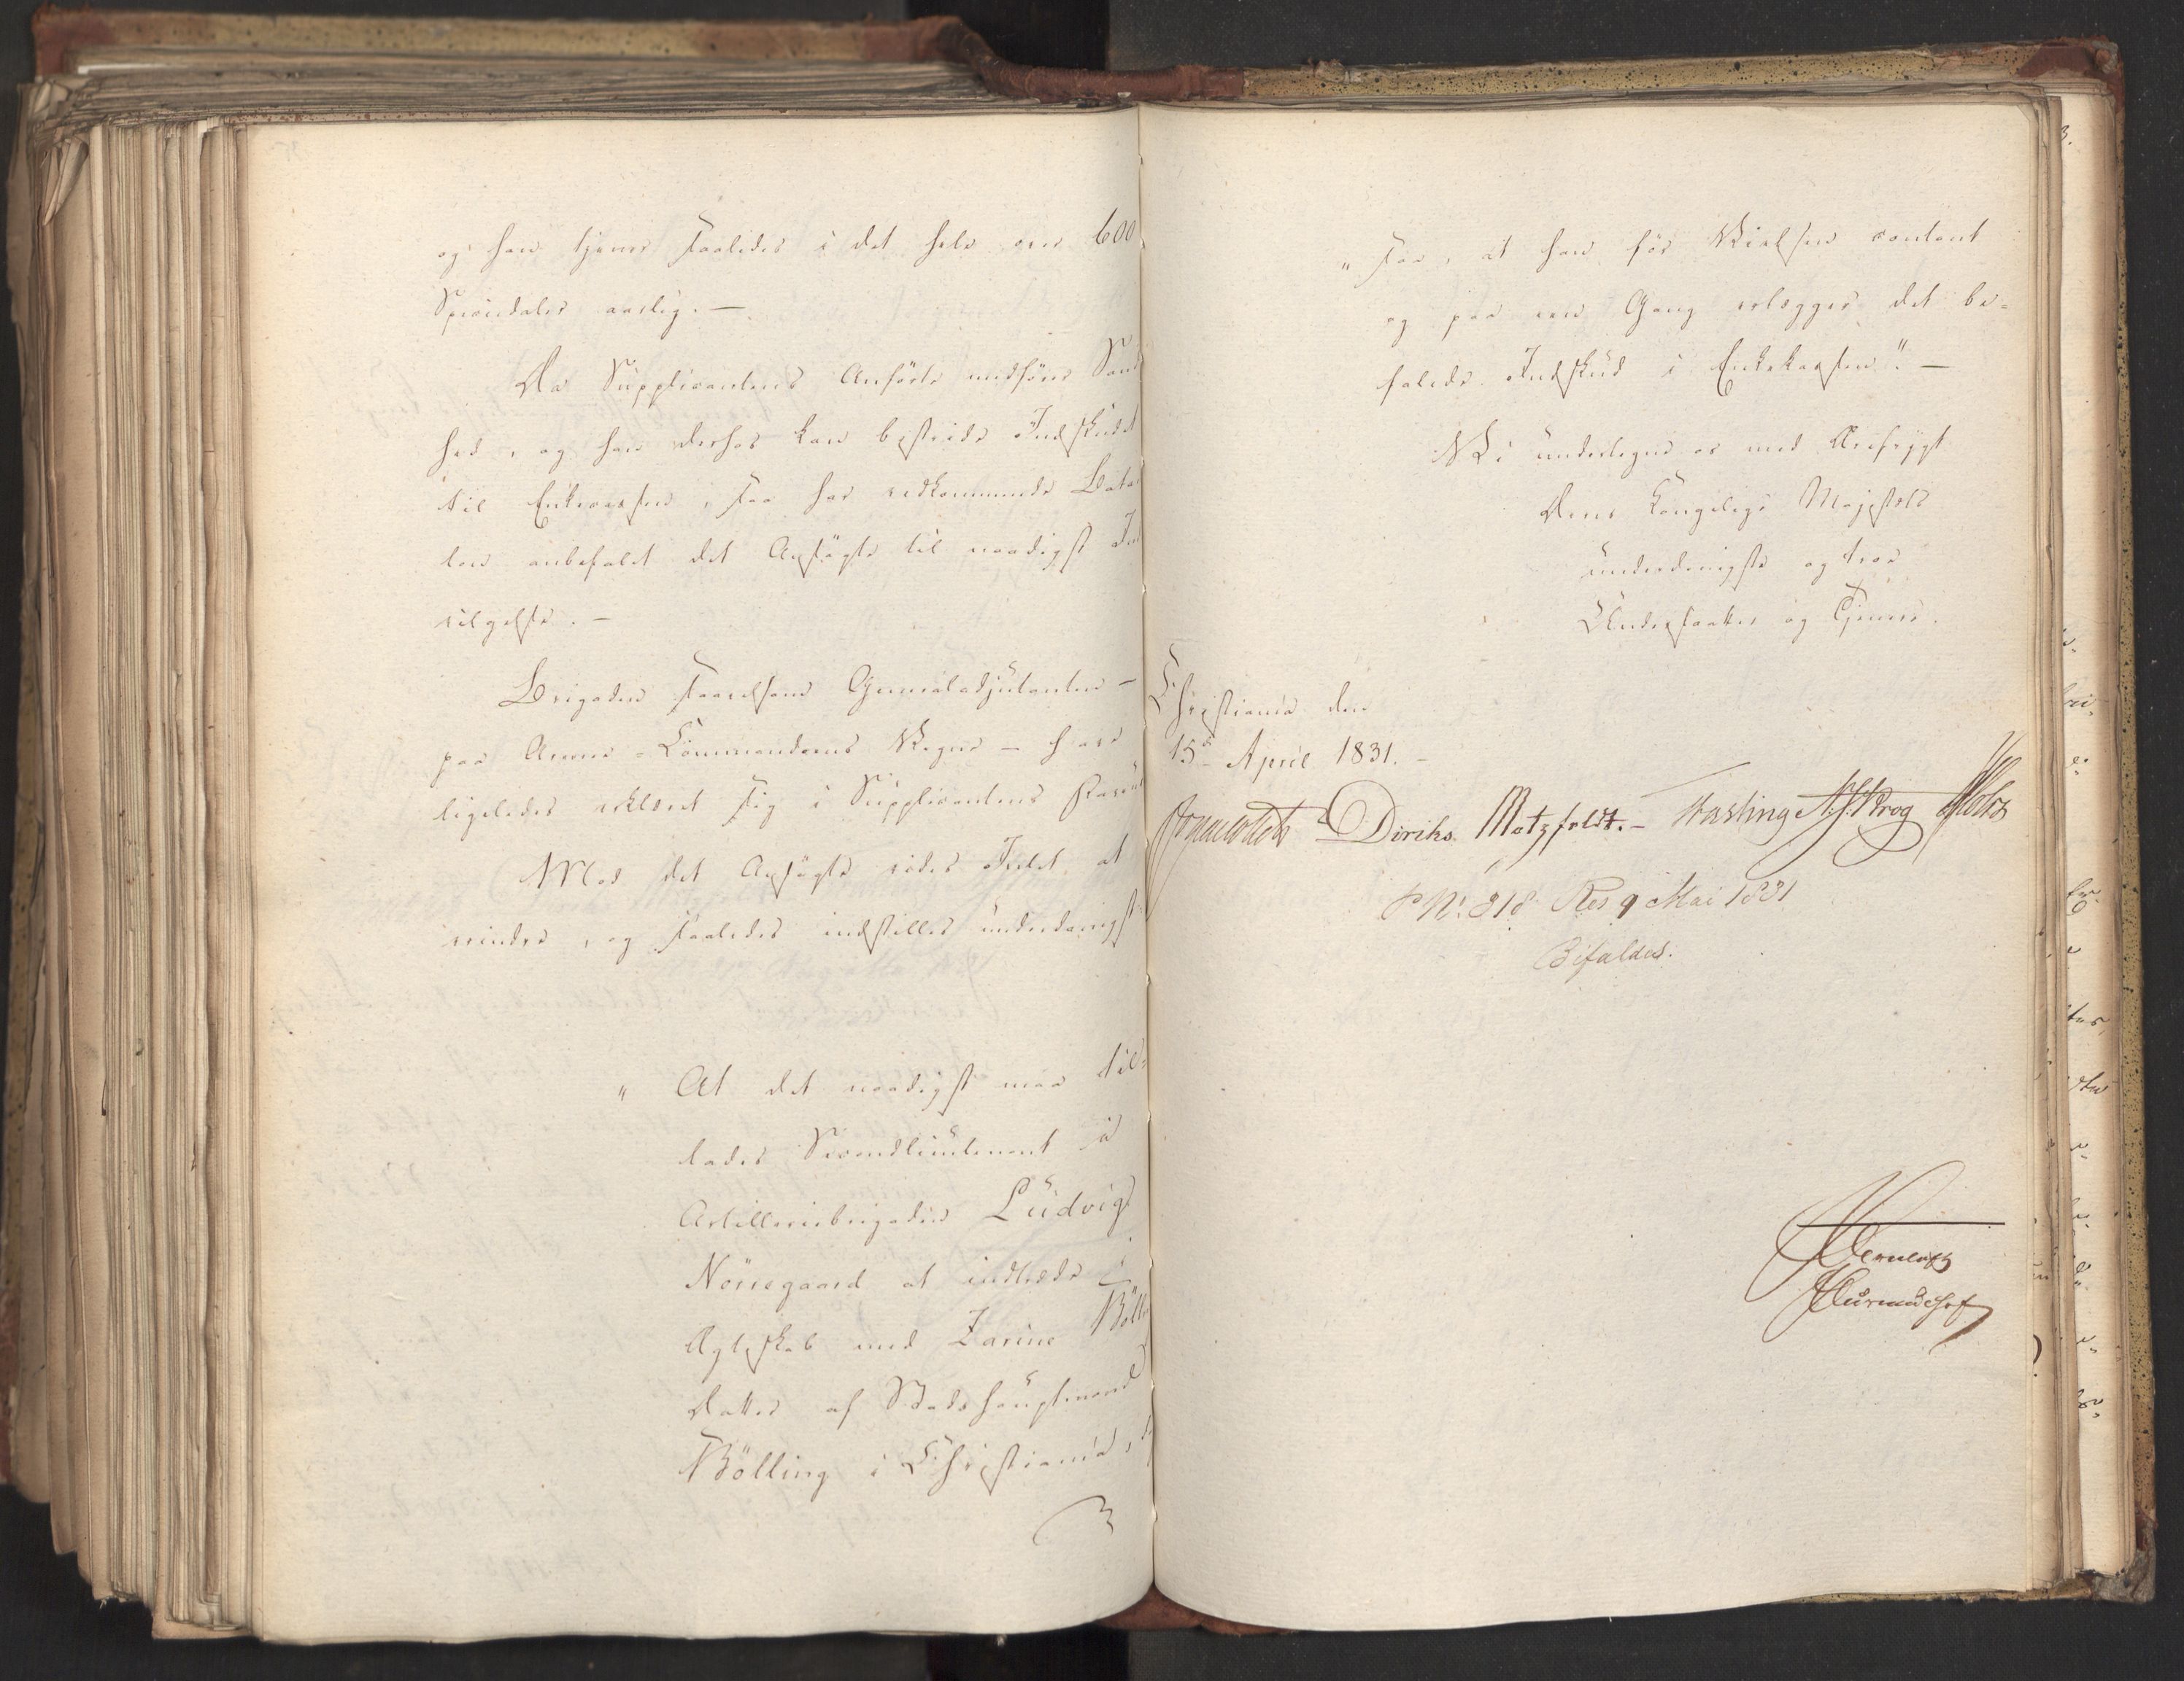 og han tjener saaledes i det hele over 600
Speciedaler aarlig. —
Da Supplicantens Anförte medfører Sand
hed, og han derhos kan bestride Indskudet
til Enkecassen, saa har vedkommende Batai
lon anbefalet det Ansögte til naadigst Ind
vilgelse. —
Brigaden saavelsom Generaladjutanten —
paa Armee-Commandoens Vegne — have
ligeledes erklæret sig i Supplicantens Faveur
Mod det Ansögte vides Intet at
erindre, og saaledes indstilles underdanigst:
" At det naadigst maa til-
lades Secondlieutenant i
Artilleriebrigaden Ludvig
Nörregaard at indtræde i
Ægteskab med Zarine Bölling
Datter af Stadshauptmand
Bölling i Christiania,
" saa, at han för Vielsen contant
og paa een Gang erlægger det be-
falede Indskud i Enkekassen". —
Vi undertegne os med Ærefrygt
Deres Kongelige Majestæts
underdanigste og troe
Undersaatter og Tjenere.
Christiania den
15de April 1831. —
Diriks. Motzfeldt. — Fasting N. J. Krog Holst
P No. 318 Res 9 Mai 1831
Bifaldes.